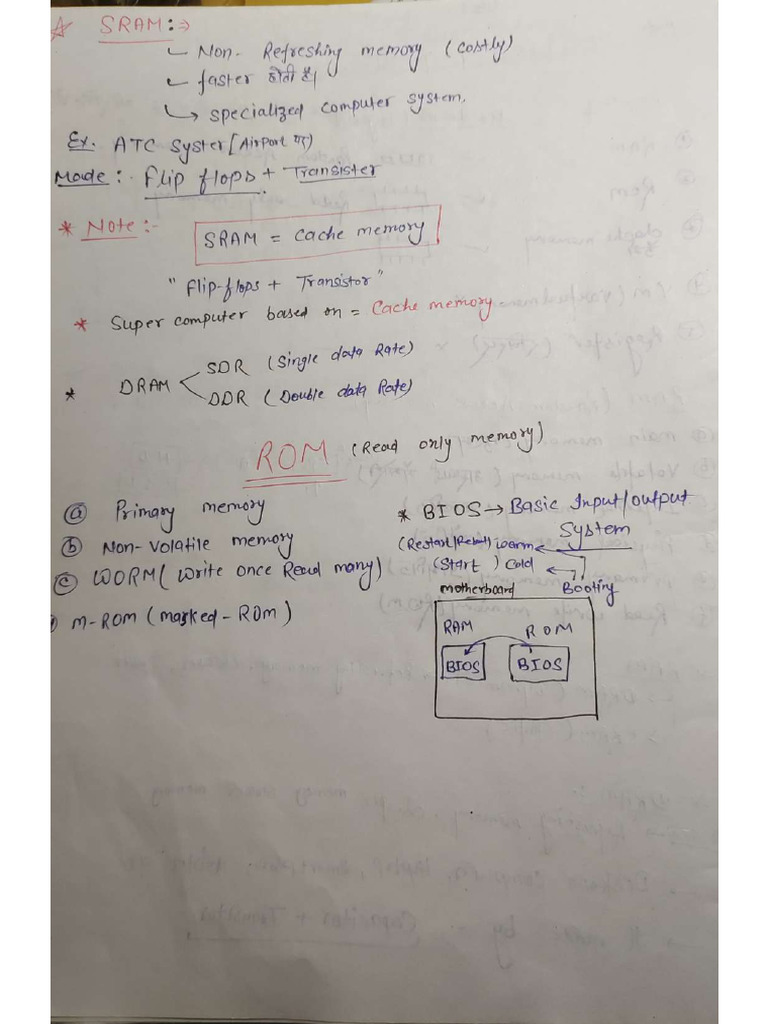 ☆ SRAM :⇒
↳ Non-Refreshing memory (costly)
↳ faster होती है।
↳ specialized computer system,
Ex. ATC Syster [Airport पर)
Made :- Flip flops + Transister
* Note :-
SRAM = cache memory
"Flip-flops + Transistor"
* Super computer based on = Cache memory
* DRAM
SDR (Single data Rate)
DDR (Double data Rate)
ROM (Read only memory)
ⓐ Primary memory
ⓑ Non-Volatile memory
ⓒ WORM (Write once Read many)
M-ROM (masked-ROM)
* BIOS → Basic Input/output
System
(Restart/Reboot) warm ←
(Start) Cold ←
Booting
motherboard
RAM ROM
BIOS BIOS